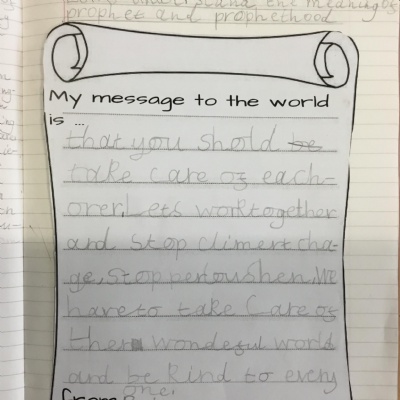 understand the meaning of
prophet and prophethood
My message to the world
is ...
that you shold be
take care of each-
orer. Lets work together
and stop climert cha-
ge, stop pertoushen. We
have to take care of
the wondeful world
and be kind to every
one.
from